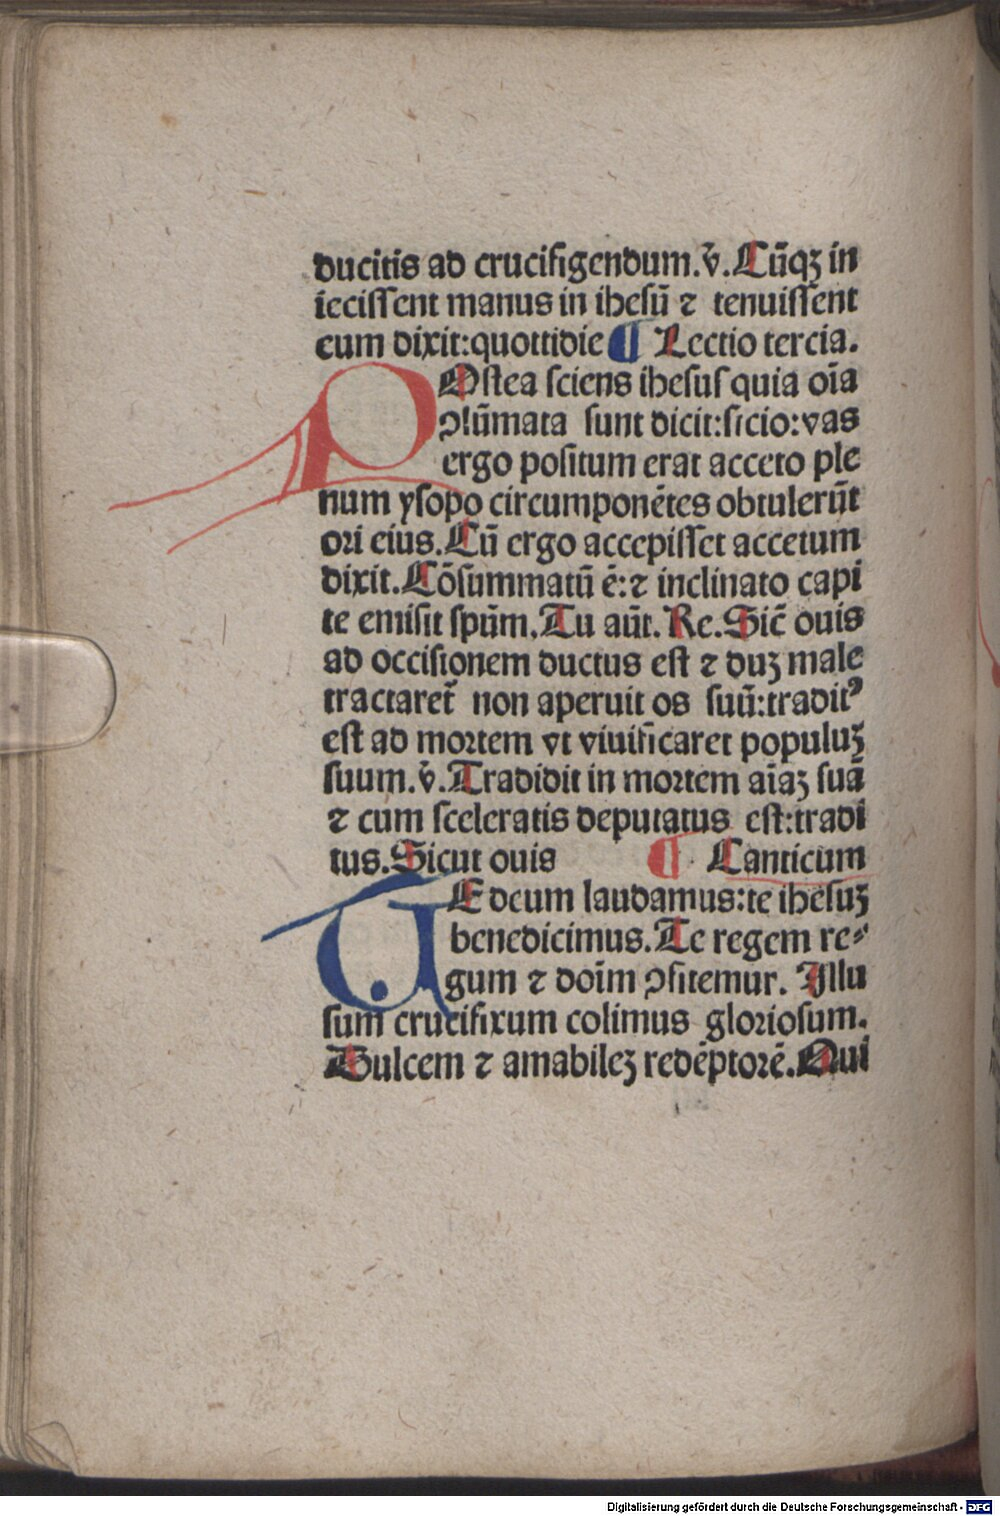 ducitis ad crucifigendum.v̄.Cūqꝫ in
iecissent manus in ihesū ⁊ tenuissent
eum dixit:quottidie ¶ Lectio tercia.
POstea sciens ihesus quia oīa
ↄsūmata sunt dicit:sicio:vas
ergo positum erat acceto ple
num ysopo circumponētes obtulerūt
ori eius.Cū ergo accepisset accetum
dixit.Cōsummatū ē:⁊ inclinato capi
te emisit spūm.Tu aūt.Re.Sic̄ ouis
ad occisionem ductus est ⁊ duꝫ male
tractaret̄ non aperuit os suū:traditꝰ
est ad mortem vt viuificaret populuꝫ
suum.v̄.Tradidit in mortem aīaꝫ suā
⁊ cum sceleratis deputatus est:tradi
tus.Sicut ouis ¶ Canticum
TE deum laudamus:te ihesuꝫ
benedicimus.Te regem re⸗
gum ⁊ doīm ↄfitemur. Illu
sum crucifixum colimus gloriosum.
Dulcem ⁊ amabileꝫ redēptorē.Qui
Digitalisierung gefördert durch die Deutsche Forschungsgemeinschaft - DFG